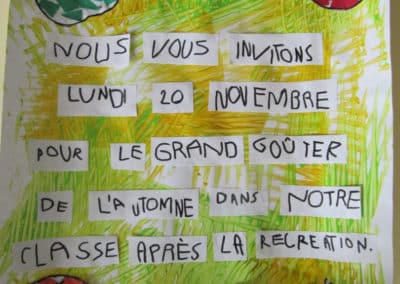 NOUS VOUS INVITONS
LUNDI 20 NOVEMBRE
POUR LE GRAND GOÛTER
DE L'AUTOMNE DANS NOTRE
CLASSE APRÈS LA RECREATION.